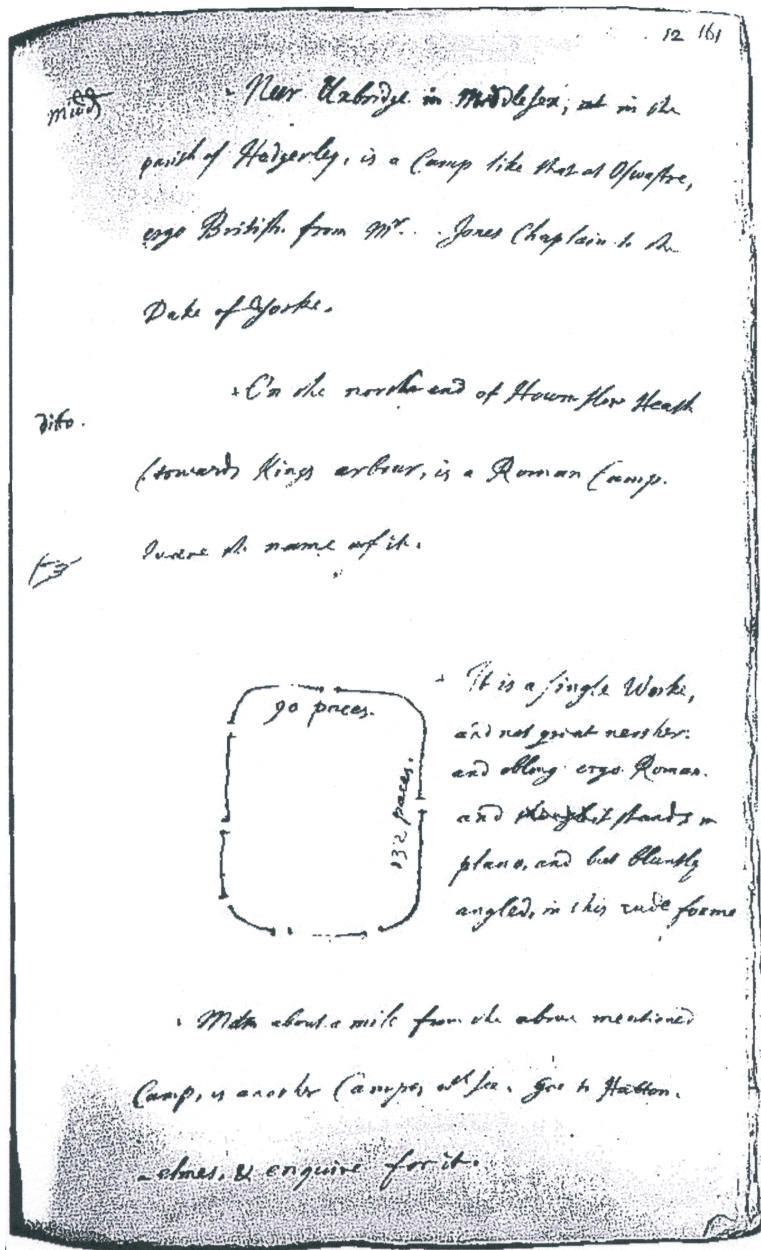 12 161
Midd
Neer Uxbridge in Middlesex, in the
parish of Hedgerley, is a Camp like that at Oswastre,
ergo British. from Mr. . . Jones Chaplain to the
Duke of Yorke.
dito.
On the north end of Hownslow Heath
(towards Kings arbour, is a Roman Camp.
Quaere the name of it.
90 paces.
132 paces.
It is a single Worke,
and not great neither:
and oblong ergo Roman.
and it stands in
plano, and but bluntly
angled, in this rude forme
Mdm about a mile from the above mentioned
Camp, is another Campe, see. goe to Hatton.
-elmes, & enquire for it.